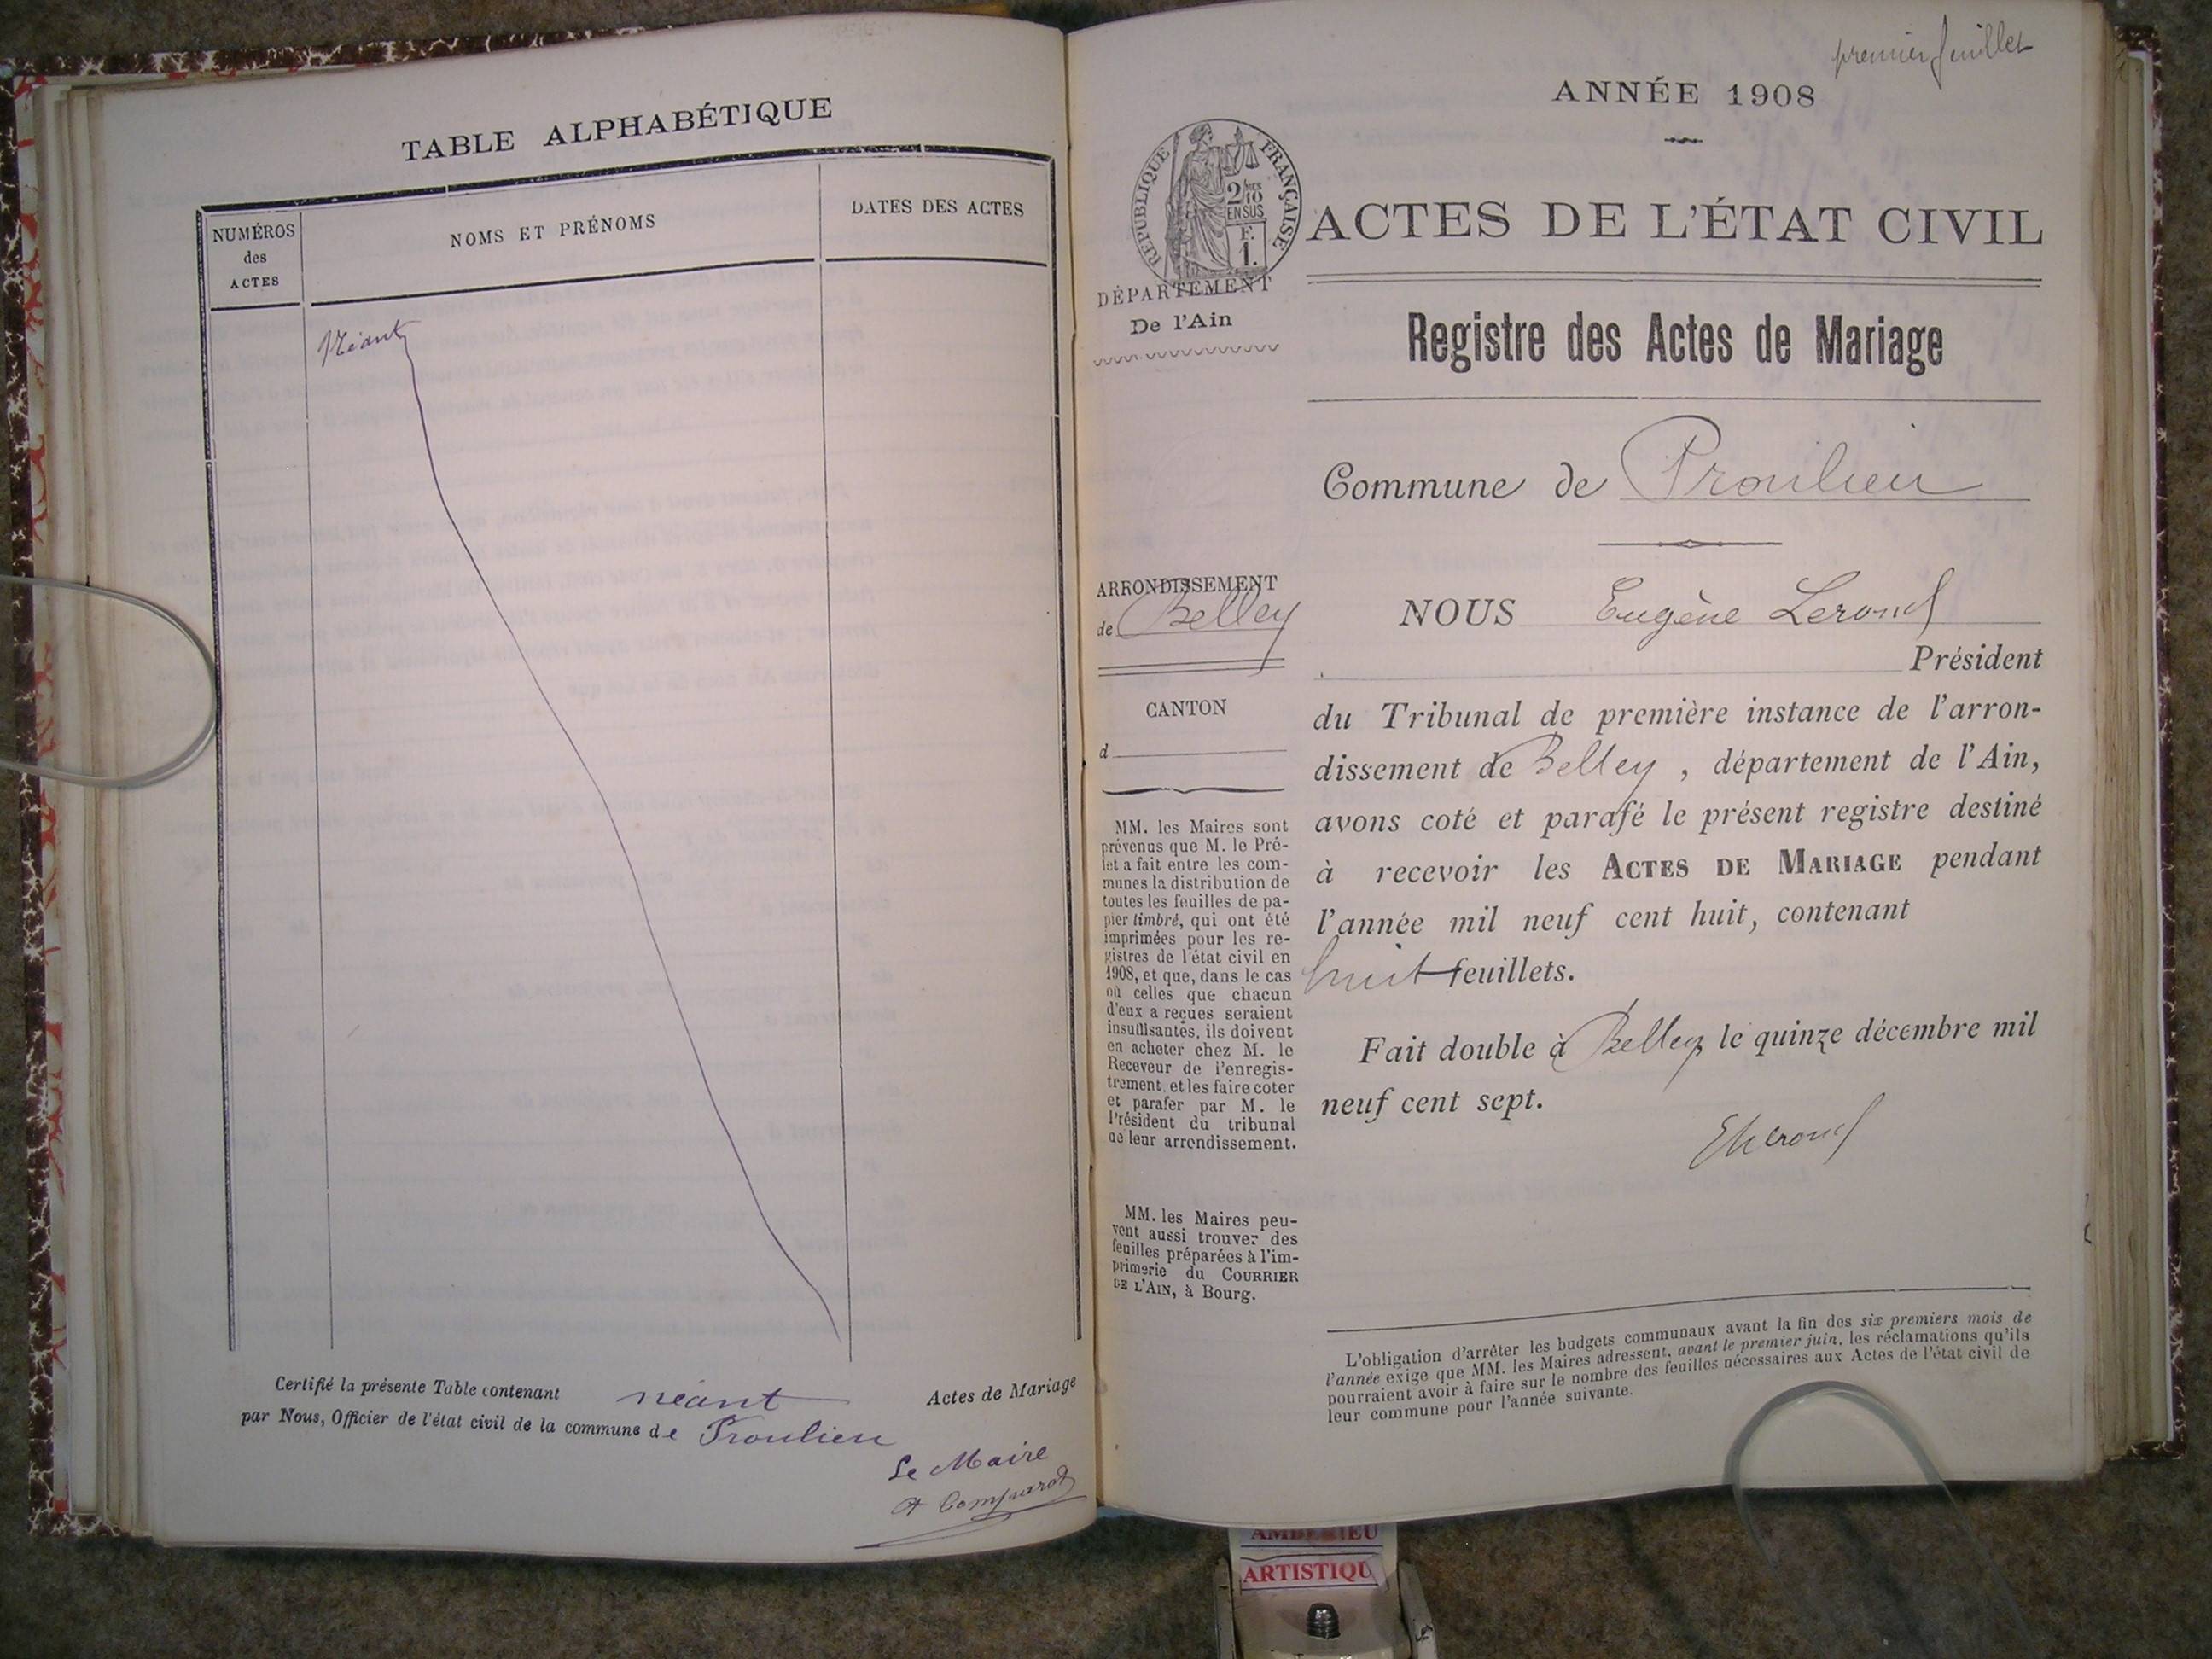 TABLE ALPHABÉTIQUE
NUMÉROS
des
ACTES
NOMS ET PRÉNOMS
DATES DES ACTES
Néant
Certifié la présente Table contenant néant Actes de Mariage
par Nous, Officier de l'état civil de la commune de Proulieu
Le Maire
A Comparat
premier feuillet
ANNÉE 1908
RÉPUBLIQUE FRANÇAISE
2/10
EN SUS
F.
1.
ACTES DE L'ÉTAT CIVIL
DÉPARTEMENT
De l'Ain
Registre des Actes de Mariage
Commune de Proulieu
ARRONDISSEMENT
de Belley
CANTON
d
MM. les Maires sont
prévenus que M. le Pré-
fet a fait entre les com-
munes la distribution de
toutes les feuilles de pa-
pier timbré, qui ont été
imprimées pour les re-
gistres de l'état civil en
1908, et que, dans le cas
où celles que chacun
d'eux a reçues seraient
insuffisantes, ils doivent
en acheter chez M. le
Receveur de l'enregis-
trement, et les faire coter
et parafer par M. le
Président du tribunal
de leur arrondissement.
MM. les Maires peu-
vent aussi trouver des
feuilles préparées à l'im-
primerie du COURRIER
DE L'AIN, à Bourg.
NOUS Eugène Lerond
Président
du Tribunal de première instance de l'arron-
dissement de Belley, département de l'Ain,
avons coté et parafé le présent registre destiné
à recevoir les ACTES DE MARIAGE pendant
l'année mil neuf cent huit, contenant
huit feuillets.
Fait double à Belley le quinze décembre mil
neuf cent sept.
E Lerond
L'obligation d'arrêter les budgets communaux avant la fin des six premiers mois de
l'année exige que MM. les Maires adressent, avant le premier juin, les réclamations qu'ils
pourraient avoir à faire sur le nombre des feuilles nécessaires aux Actes de l'état civil de
leur commune pour l'année suivante.
AMBERIEU
ARTISTIQU